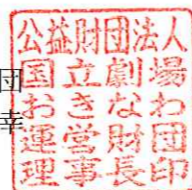 公益財団法人
団国立劇場
おきなわ
幸運営財団
理事長印